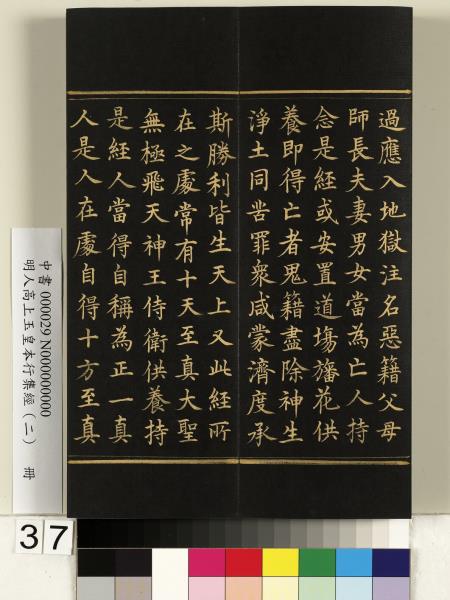 過應入地獄注名惡籍父母
師長夫妻男女當為亡人持
念是經或安置道塲旛花供
養即得亡者鬼籍盡除神生
淨土同苦罪衆咸蒙濟度承
斯勝利皆生天上又此經所
在之處常有十天至真大聖
無極飛天神王侍衛供養持
是經人當得自稱為正一真
人是人在處自得十方至真
中書 000029 N000000000
明人高上玉皇本行集經（二） 冊
37